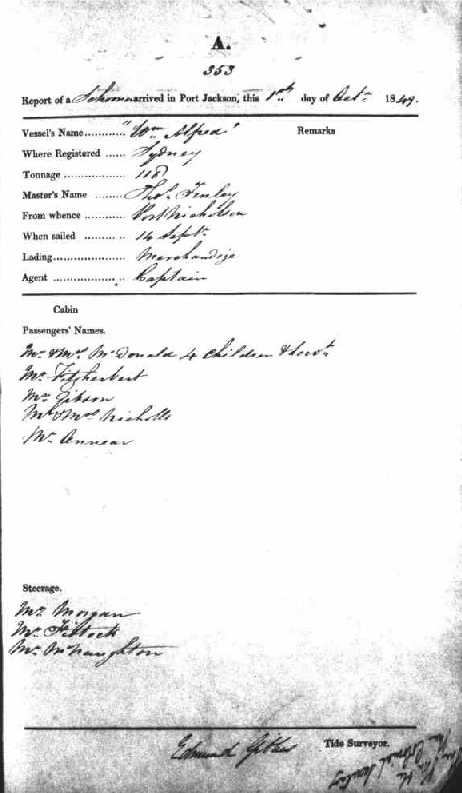 A.
353
Report of a Schooner arrived in Port Jackson, this 1st day of Octr 1849.
Vessel's Name ........... "Wm Alfred"
Remarks
Where Registered ...... Sydney
Tonnage .................. 118
Master's Name ......... Thos
From whence ........... Port Nicholson
When sailed ........... 14 Septr
Lading..................... Merchandize
Agent ..................... Captain
Cabin
Passengers' Names.
Mr & Mrs McDonald 4 Children & Servt
Mr Fitzherbert
Mr Gibson
Mr & Mrs Nicholls
Mr Annear
Steerage.
Mr Morgan
Mr
Mr McNaughton
Edmund
Tide Surveyor.